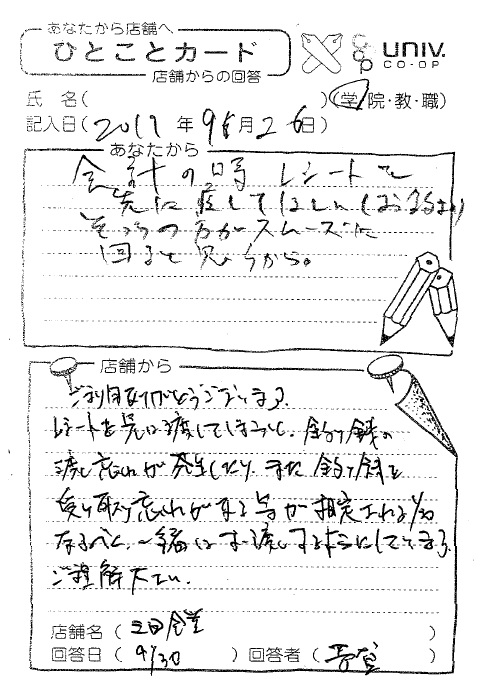 あなたから店舗へ
ひとことカード
店舗からの回答
UNIV.
CO-OP
co op
氏 名( )(学 院・教・職)
記入日( 2017 年 9 月 26 日)
あなたから
会計の時レシートを
先に渡してほしい(お釣より)
そっちの方がスムーズに
回ると思うから。
店舗から
ご利用ありがとうございます。
レシートを先に渡してしまうと、釣り銭の
渡し忘れが発生したり、また釣り銭を
受け取り忘れがする等が想定される為
なるべく、一緒にお渡しするようにしています。
ご理解下さい。
店舗名( 食堂 )
回答日( 9/30 )回答者( )